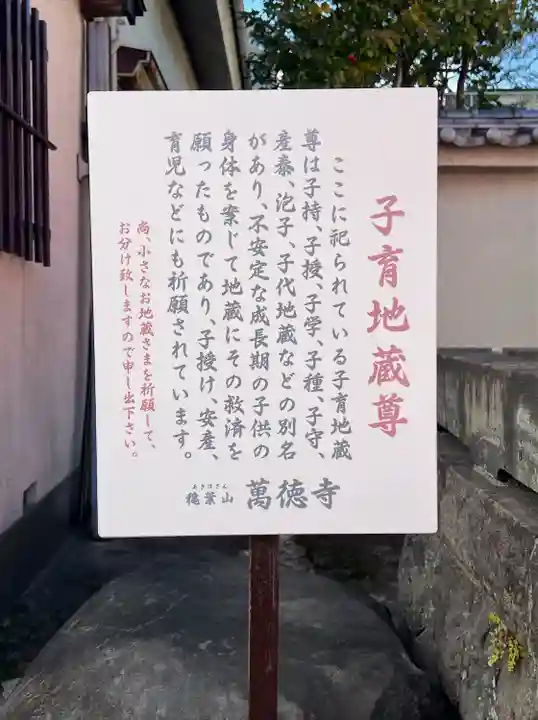 子育地蔵尊
ここに祀られている子育地蔵
尊は子持、子授、子学、子種、子守、
産泰、泡子、子代地蔵などの別名
があり、不安定な成長期の子供の
身体を案じて地蔵にその救済を
願ったものであり、子授け、安産、
育児などにも祈願されています。
尚、小さなお地蔵さまを祈願して、
お分け致しますので申し出下さい。
あきはさん
穐葉山 萬徳寺